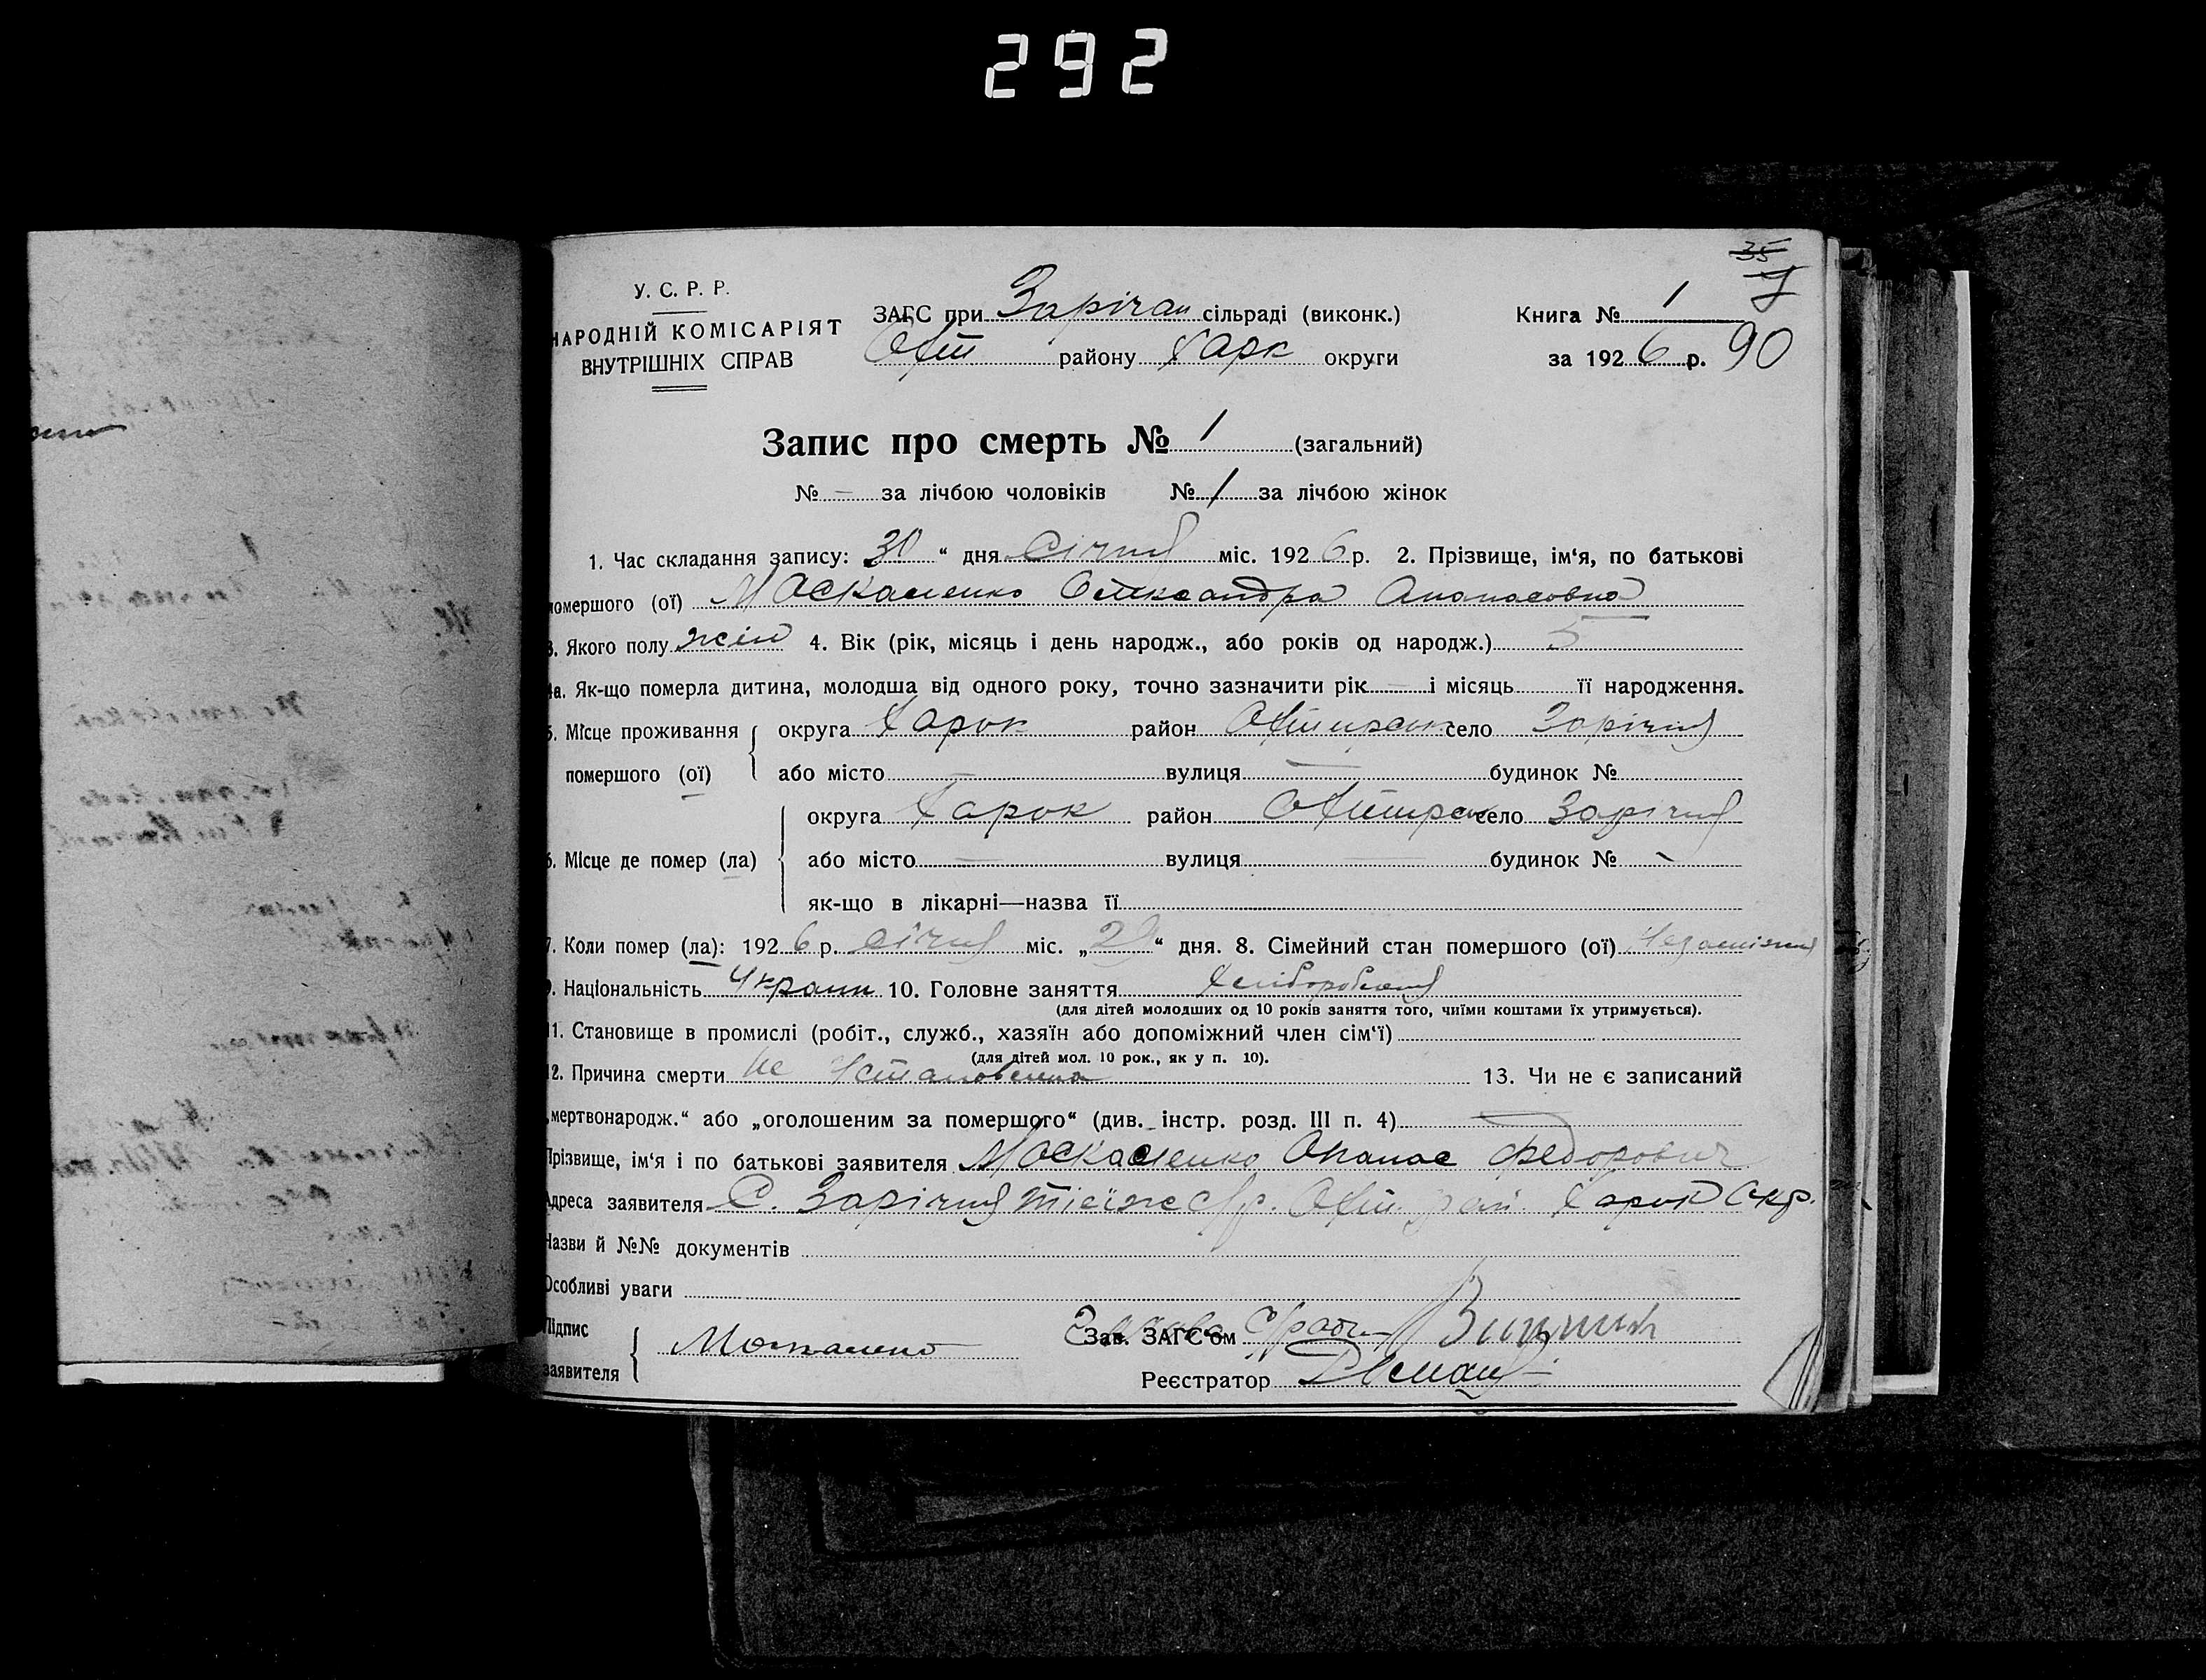 292
35
У. С. Р. Р.
НАРОДНІЙ КОМІСАРІЯТ
ВНУТРІШНІХ СПРАВ
ЗАГС при Зарічан сільраді (виконк.)
Охт району Харк округи
Книга № 1
за 1926 р. 90
Запис про смерть № 1 (загальний)
№ — за лічбою чоловіків № 1 за лічбою жінок
1. Час складання запису: 30 “ дня січня міс. 1926 р. 2. Прізвище, ім‘я, по батькові
помершого (ої) Маскаленко Олександра Апанасовна
3. Якого полу жін 4. Вік (рік, місяць і день народж., або років од народж.) 5
4а. Як-що померла дитина, молодша від одного року, точно зазначити рік — і місяць її народження.
5. Місце проживання округа Харок район село Зарічня
помершого (ої) або місто — вулиця — будинок №
округа Харок район село Зарічня
6. Місце де помер (ла) або місто — вулиця — будинок № -
як-що в лікарні—назва її
7. Коли помер (ла): 1926 р. січня міс. „29“ дня. 8. Сімейний стан помершого (ої)
9. Національність Україн 10. Головне заняття
(для дітей молодших од 10 років заняття того, чиїми коштами їх утримується).
11. Становище в промислі (робіт., служб., хазяїн або допоміжний член сім‘ї)
(для дітей мол. 10 рок., як у п. 10).
12. Причина смерти не установлена 13. Чи не є записаний
„мертвонародж.“ або „оголошеним за помершого“ (див. інстр. розд. III п. 4) —
Прізвище, ім‘я і по батькові заявителя Маскаленко Опанас Федорович
Адреса заявителя С. Зарічня тієїж с/р. Охт. рай. Харок Окр.
Назви й №№ документів
Особливі уваги
Підпис
заявителя
Зав. ЗАГС‘ом
Реєстратор